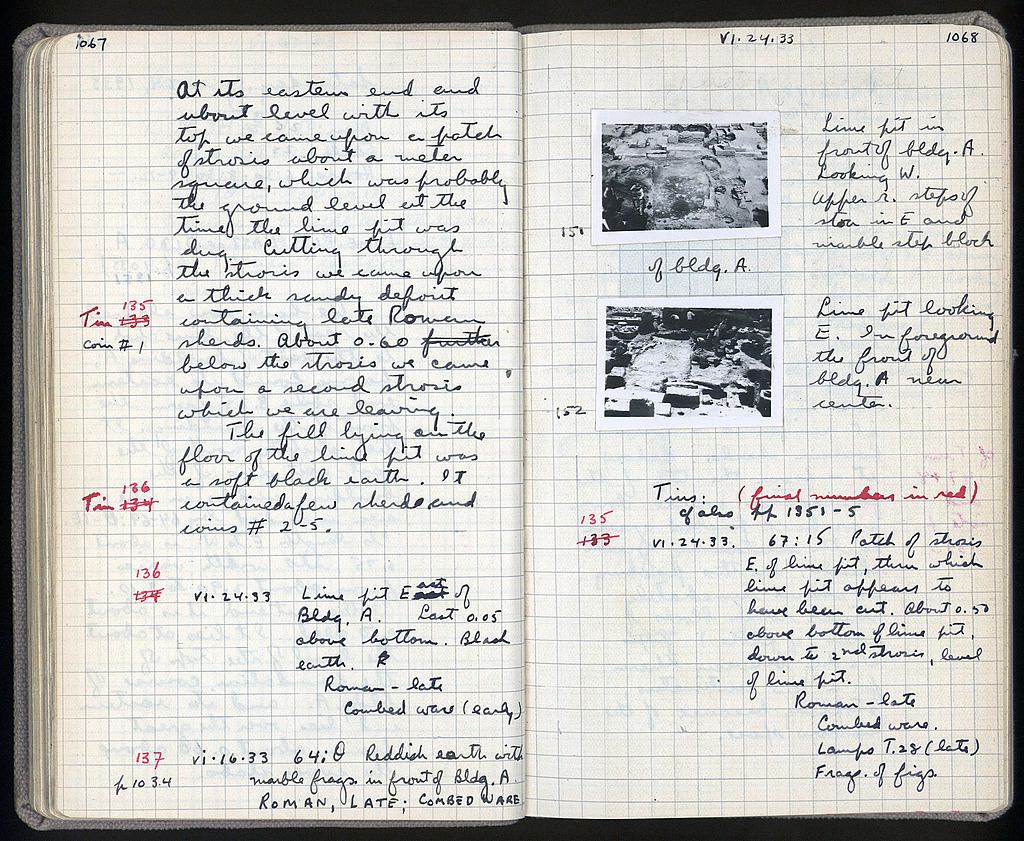 1067
At its eastern end and
about level with its
top we came upon a patch
of strosis about a meter
square, which was probably
the ground level at the
time the lime pit was
dug. Cutting through
the strosis we came upon
a thick sandy deposit
135
Tin 133
containing late Roman
coin # 1
sherds. About 0.60 further
below the strosis we came
upon a second strosis
which we are leaving.
The fill lying on the
floor of the lime pit was
a soft black earth. It
136
Tin 134
contained a few sherds and
coins # 2-5.
136
134
VI.24.33 Lime pit East of
Bldg. A. Last 0.05
above bottom. Black
earth.
Roman - late
Combed ware (early)
137 VI.16.33 64:Θ Reddish earth with
p 1034 marble frags. in front of Bldg. A.
ROMAN, LATE; COMBED WARE
VI.24.33
1068
Lime pit in
front of bldg. A.
Looking W.
Upper r. steps of
stoa in E and
marble step block
151
of bldg. A.
Lime pit looking
E. In foreground
the front of
bldg. A near
center.
152
Tins: (final numbers in red)
cf also pp 1051-5
135
133 VI.24.33. 67:15 Patch of strosis
E. of lime pit, thru which
lime pit appears to
have been cut. About 0.50
above bottom of lime pit,
down to 2nd strosis, level
of lime pit.
Roman - late
Combed ware.
Lamps T.28 (late)
Frags. of figs.